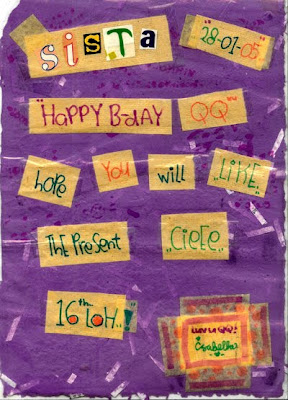 SISTA
"28-01-05"
"HAPPY B-dAY QQ""
hope You will LIKE..
THE PrESENT ,,CIEEE..
16th LOH..!
LUV U QQ!